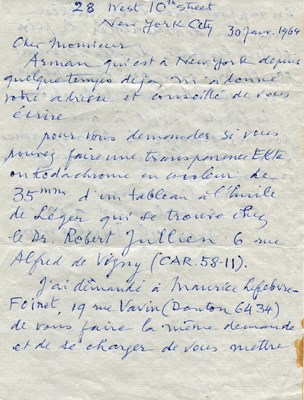 28 West 10th Street
New York City 30 Janv. 1964
Cher Monsieur
Arman qui est à New York depuis
quelque temps déja, m'a donné
votre adresse et conseillé de vous
écrire
pour vous demander si vous
pouvez faire une transparence Ekta
ou Kodachrome en couleur de
35mm d'un tableau à l'huile
de Léger qui se trouve chez
le Dr. Robert Jullien 6 rue
Alfred de Vigny (CAR. 58-11).
J'ai demandé à Maurice Lefebvre-
Foinet, 19 rue Vavin (Danton 6434)
de vous faire la même demande
et de se charger de vous mettre